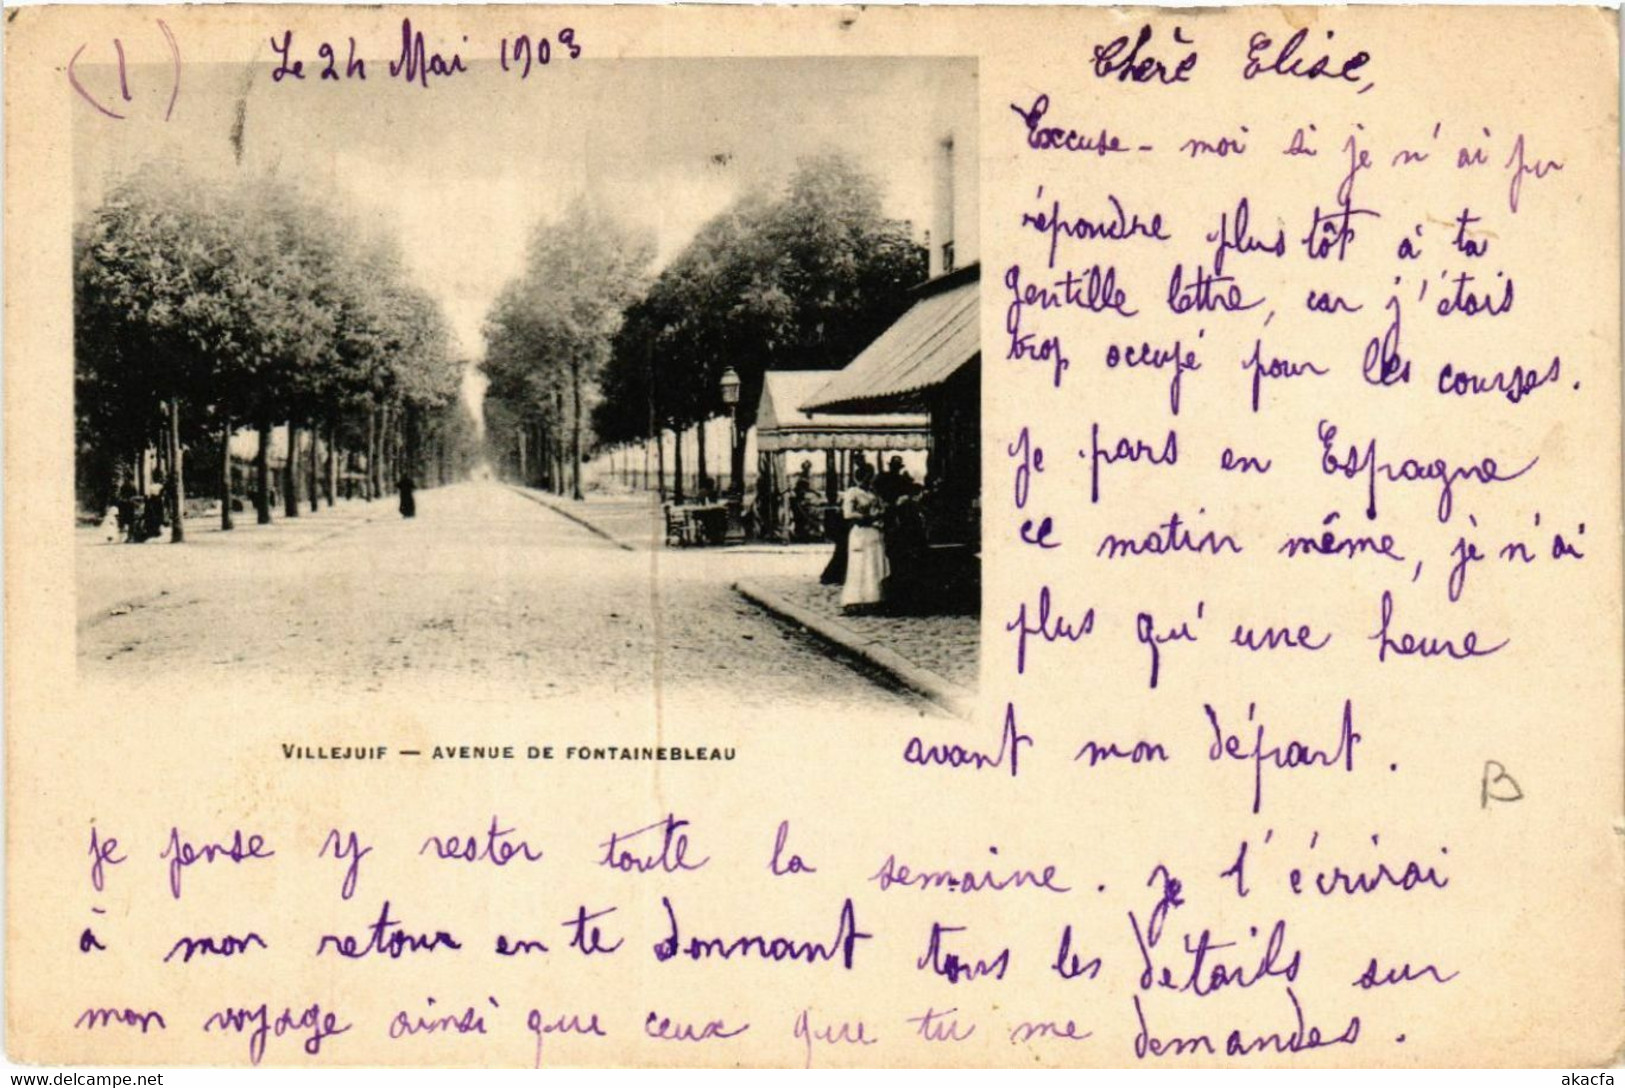 (1)
Le 24 Mai 1903
Chère Elise,
Excuse-moi si je n'ai pu
répondre plus tôt à ta
gentille lettre, car j'étais
trop occupé pour les courses.
Je pars en Espagne
ce matin même, je n'ai
plus qu'une heure
avant mon départ.
VILLEJUIF — AVENUE DE FONTAINEBLEAU
B
je pense y rester toute la semaine. Je t'écrirai
à mon retour en te donnant tous les détails sur
mon voyage ainsi que ceux que tu me demandes.
www.delcampe.net
akacfa